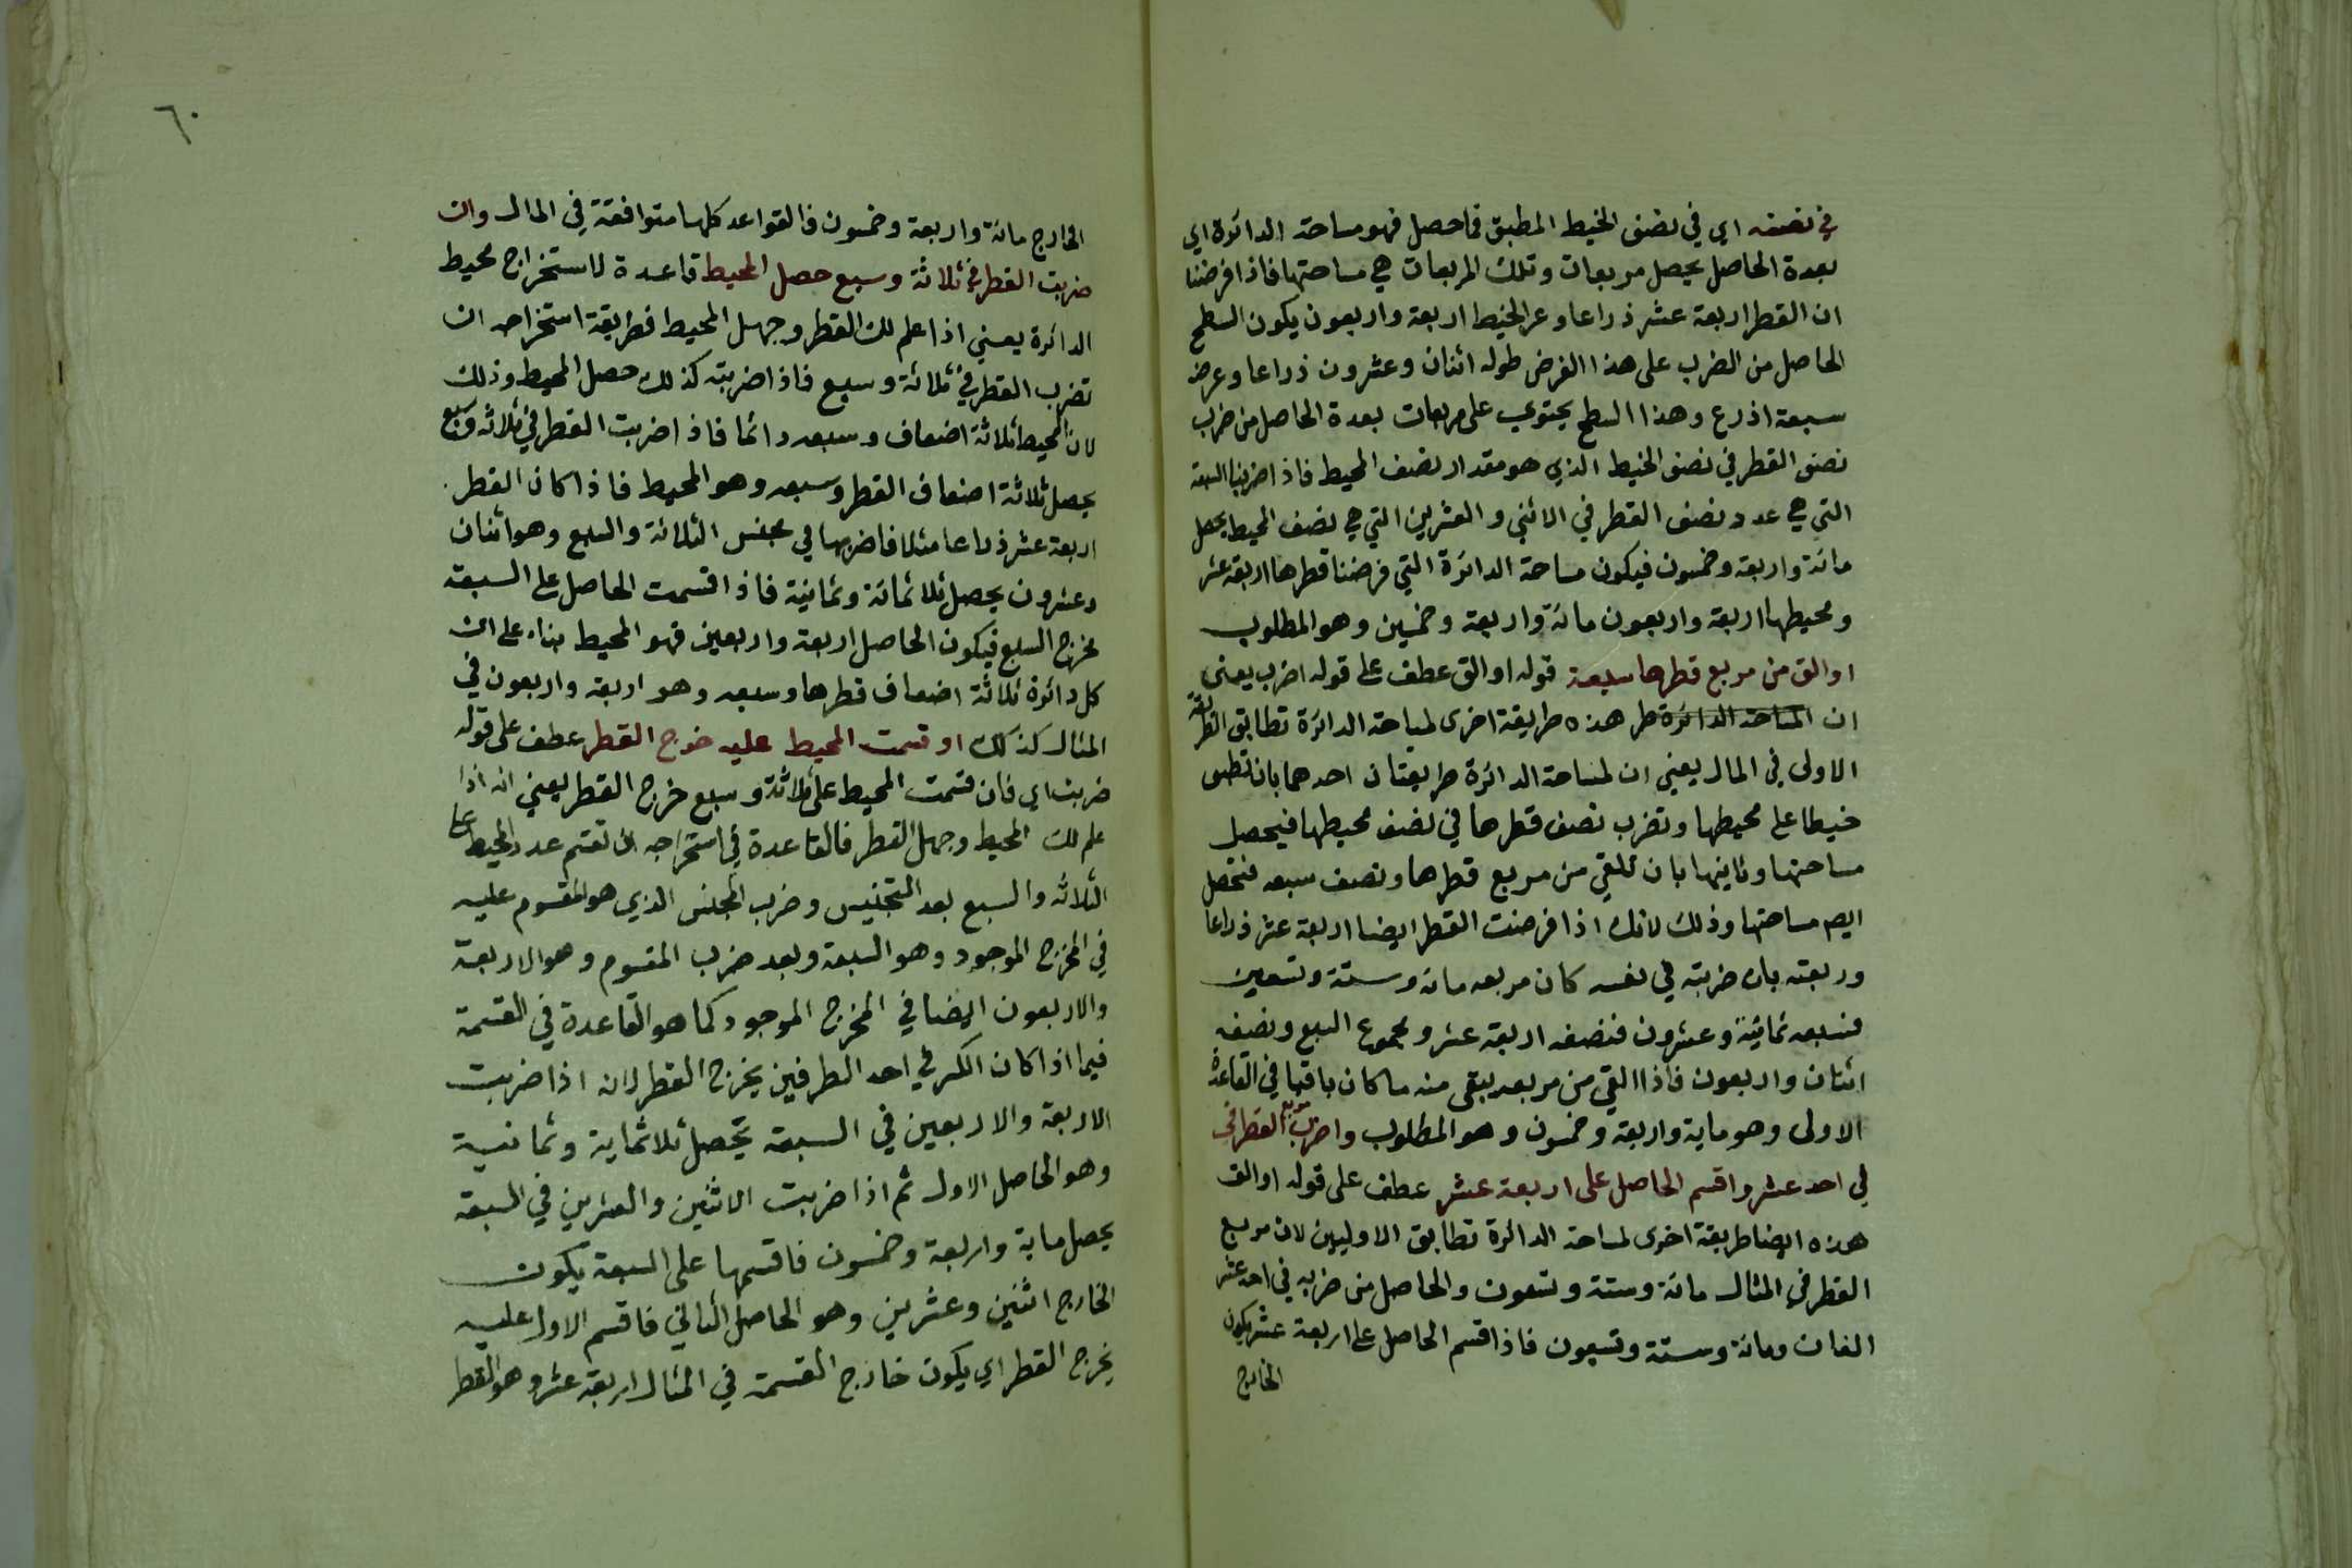 في نصفه اي في نصف الخيط المطبق فما حصل فهو مساحة الدائرة اي
بعدة الحاصل يحصل مربعات وتلك المربعات هي مساحتها فاذا فرضنا
ان القطر اربعة عشر ذراعا وعر الخيط اربعة واربعون يكون السطح
الحاصل من الضرب على هذا الفرض طوله اثنان وعشرون ذراعا وعرضه
سبعة اذرع وهذا السطح يحتوي على مربعات بعدة الحاصل من ضرب
نصف القطر في نصف الخيط الذي هو مقدار نصف المحيط فاذا ضربنا السبعة
التي هي عدد نصف القطر في الاثني والعشرين التي هي نصف المحيط يحصل
مائة واربعة وخمسون فيكون مساحة الدائرة التي فرضنا قطرها اربعة عشر
ومحيطها اربعة واربعون مائة واربعة وخمسين وهو المطلوب
او الق من مربع قطرها سبعة قوله او الق عطف على قوله اضرب يعني
ان المساحة الدائرة طر هذه طريقة اخرى لمساحة الدائرة تطابق الطريقة
الاولى في المال يعني ان لمساحة الدائرة طريقتان احدهما بان تطبق
خيطا على محيطها وتضرب نصف قطرها في نصف محيطها فيحصل
مساحتها وثانيها بان تلقي من مربع قطرها ونصف سبعه فتحصل
ايضا مساحتها وذلك لانك اذا فرضت القطر ايضا اربعة عشر ذراعا
وربعته بان ضربته في نفسه كان مربعه مائة وستة وتسعين
فسبعه ثمانية وعشرون فنصفه اربعة عشر ومجموع السبع ونصفه
اثنان واربعون فاذا القي من مربعه يبقى منه ما كان باقيا في القاعدة
الاولى وهو ماية واربعة وخمسون وهو المطلوب واضرب مربع القطر في
في احد عشر واقسم الحاصل على اربعة عشر عطف على قوله او الق
هذه ايضا طريقة اخرى لمساحة الدائرة تطابق الاوليين لان مربع
القطر في المثال مائة وستة وتسعون والحاصل من ضربه في احد عشر
الفان ومائة وستة وتسعون فاذا قسم الحاصل على اربعة عشر يكون
الخارج
٦٠
الخارج مائة واربعة وخمسون فالقواعد كلها متوافقة في المال وان
ضربت القطر في ثلاثة وسبع حصل المحيط قاعدة لاستخراج محيط
الدائرة يعني اذا علم لك القطر وجهل المحيط فطريقة استخراجه ان
تضرب القطر في ثلاثة وسبع فاذا ضربته كذلك حصل المحيط وذلك
لان المحيط ثلاثة اضعاف وسبعه دائما فاذا ضربت القطر في ثلاثة وسبع
يحصل ثلاثة اضعاف القطر وسبعه وهو المحيط فاذا كان القطر
اربعة عشر ذراعا مثلا فاضربها في مجنس الثلاثة والسبع وهو اثنان
وعشرون يحصل ثلاثمائة وثمانية فاذا قسمت الحاصل على السبعة
مخرج السبع فيكون الحاصل اربعة واربعين فهو المحيط بناء على ان
كل دائرة ثلاثة اضعاف قطرها وسبعه وهو اربعة واربعون في
المثال كذلك او قسمت المحيط عليه خرج القطر عطف على قوله
ضربت اي فان قسمت المحيط على ثلاثة وسبع خرج القطر يعني انه اذا
علم لك المحيط وجهل القطر فالقاعدة في استخراجه ان تقسم عدد المحيط على
الثلاثة والسبع بعد التجنيس وضرب المجنس الذي هو المقسوم عليه
في المخرج الموجود وهو السبعة وبعد ضرب المقسوم وهو الاربعة
والاربعون ايضا في المخرج الموجود كما هو القاعدة في القسمة
فيما اذا كان الكسر في احد الطرفين يخرج القطر لانه اذا ضربت
الاربعة والاربعين في السبعة يحصل ثلاثماية وثمانية
وهو الحاصل الاول ثم اذا ضربت الاثنين والعشرين في السبعة
يحصل ماية واربعة وخمسون فاقسمها على السبعة يكون
الخارج اثنين وعشرين وهو الحاصل الثاني فاقسم الاول عليه
يخرج القطر اي يكون خارج القسمة في المثال اربعة عشر وهو القطر